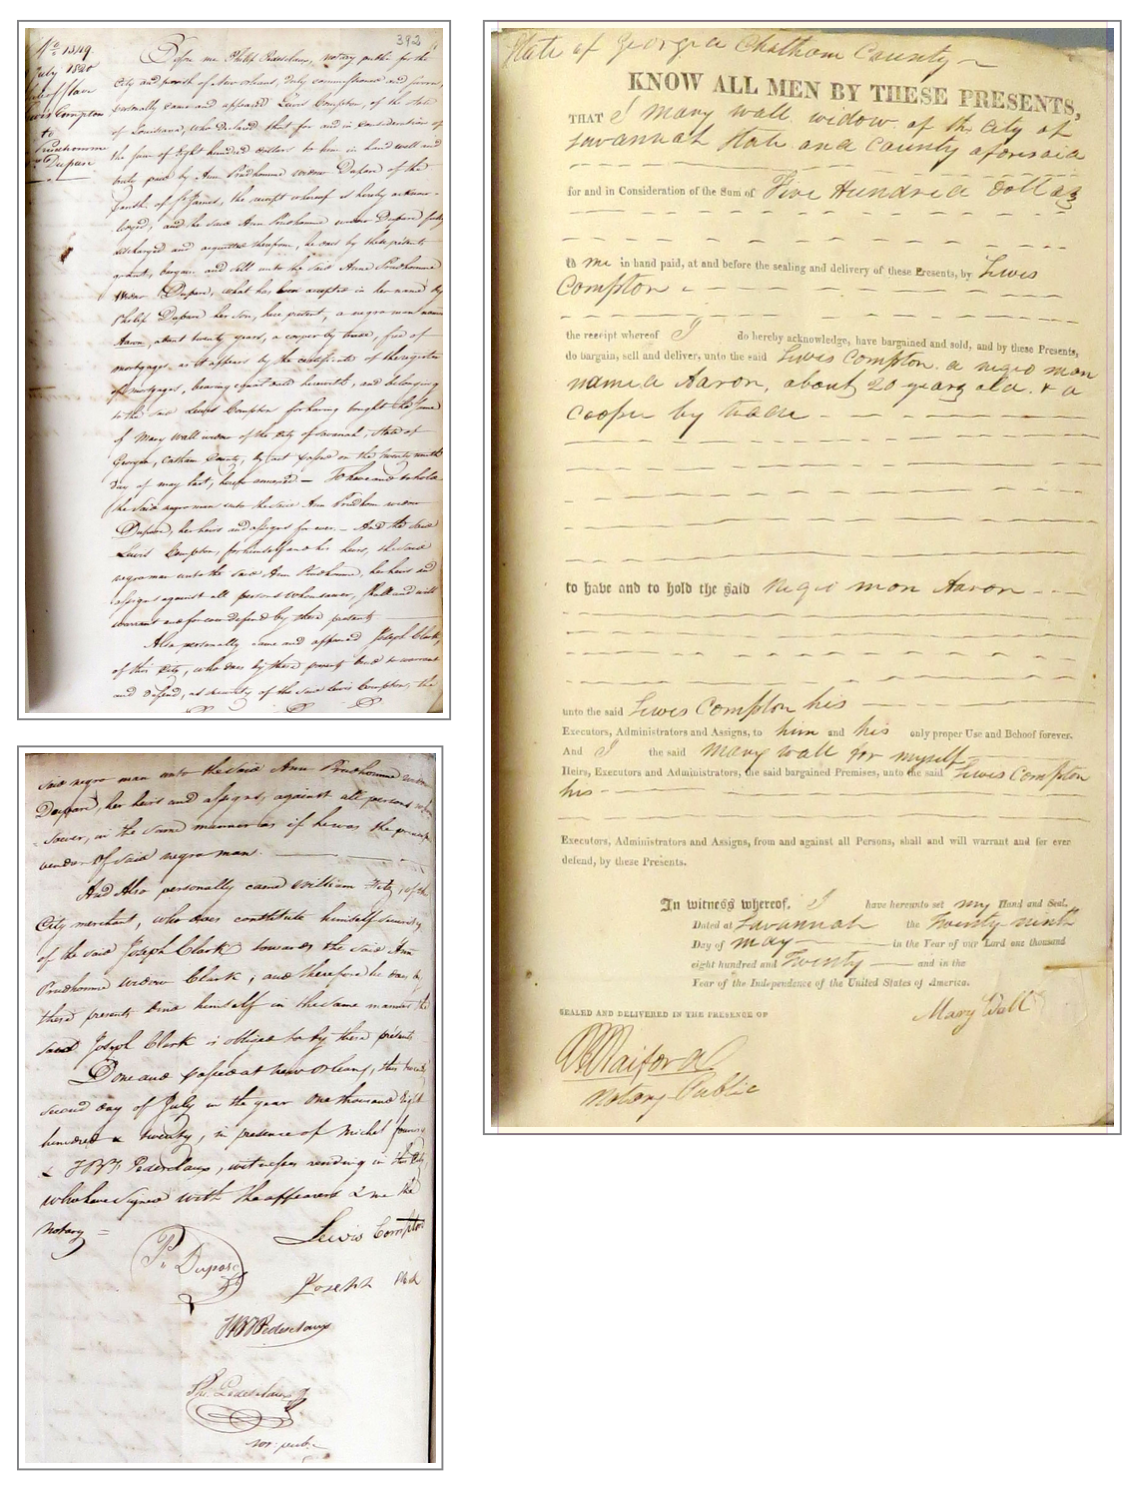 392
No. 1349.
July 1820
Sale of Slave
Lewis Compton
to
Prudhomme
Dupare
Before me Philip Pedesclaux, notary public for the
City and parish of New orleans, duly commissioned and sworn,
personally came and appeared Lewis Compton, of the State
of Louisiana, who declared that for and in consideration of
the sum of Eight hundred dollars to him in hand well and
truly paid by Ann Prudhomme widow Dupare of the
parish of St James, the receipt whereof is hereby acknow-
ledged, and the said Ann Prudhomme widow Dupare fully
discharged and acquitted therefrom, he does by these presents
grant, bargain and sell unto the said Anne Prudhomme
widow Dupare, what has been accepted in her name by
Philip Dupare her Son, here present, a negro man named
Aaron, about twenty years, a cooper by trade, free of
mortgages, as it appears by the certificate of the register
of mortgages, bearing equal date herewith, and belonging
to the said Lewis Compton for having bought the same
of Mary wall widow of the City of Savannah, State of
Georgia, Catham County, by act passed on the twenty ninth
day of may last, hereto annexed — To have and to hold
the said negro man unto the said Ann Prudhom widow
Dupare, her heirs and assigns for ever. — And the said
Lewis Compton, for himself and his heirs, the said
negro man unto the said Ann Prudhomme, her heirs and
assigns against all persons whomsoever, shall and will
warrant and for ever defend by these presents
Also personally came and appeared Joseph Clark,
of this City, who does by these presents bind to warrant
and defend, as security of the said Lewis Compton, the
said negro man unto the said Ann Prudhomme widow
Dupare, her heirs and assigns, against all persons
soever, in the same manner as if he was the
vendor of said negro man.
And Also personally came William Fitz, of this
City merchant, who does constitute himself security
of the said Joseph Clark towards the said Ann
Prudhomme widow Clark; and therefore he does by
these presents bind himself in the same manner the
said Joseph Clark is obliged to by these presents
Done and passed at new Orleans, this twenty
second day of July in the year one thousand Eight
hundred & twenty, in presence of Michel
& Pedesclaux, witnesses residing in this City,
who have signed with the appearers & me the
Notary =
Lewis Compton
Dupare
Joseph
Pedesclaux
Ph. Pedesclaux
not. pub.
State of Georgia Chatham County
KNOW ALL MEN BY THESE PRESENTS,
THAT I Mary wall widow of the City of
Savannah State and County aforesaid
for and in Consideration of the Sum of Five Hundred dollars
to me in hand paid, at and before the sealing and delivery of these Presents, by Lewis
Compton
the receipt whereof I do hereby acknowledge, have bargained and sold, and by these Presents,
do bargain, sell and deliver, unto the said Lewis Compton. a negro man
named Aaron, about 20 years old. & a
cooper by trade
to have and to hold the said Negro man Aaron
unto the said Lewis Compton his
Executors, Administrators and Assigns, to him and his only proper Use and Behoof forever.
And I the said Mary wall for myself
Heirs, Executors and Administrators, the said bargained Premises, unto the said Lewis Compton
his
Executors, Administrators and Assigns, from and against all Persons, shall and will warrant and for ever
defend, by these Presents.
In witness whereof, I have hereunto set my Hand and Seal,
Dated at Savannah the Twenty ninth
Day of may in the Year of our Lord one thousand
eight hundred and Twenty and in the
Year of the Independence of the United States of America.
SEALED AND DELIVERED IN THE PRESENCE OF
Mary Wall
Notary Public